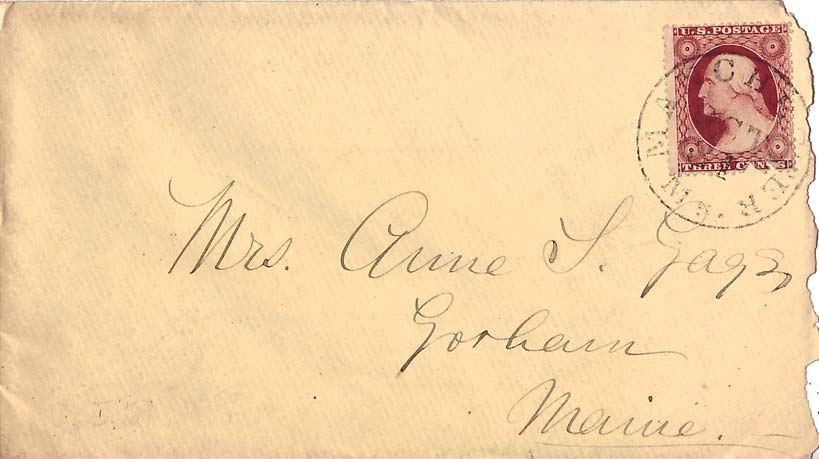 U.S. POSTAGE
THREE CENTS
MANCHESTER
OCT
Mrs. Anne S. Gage,
Gorham
Maine.